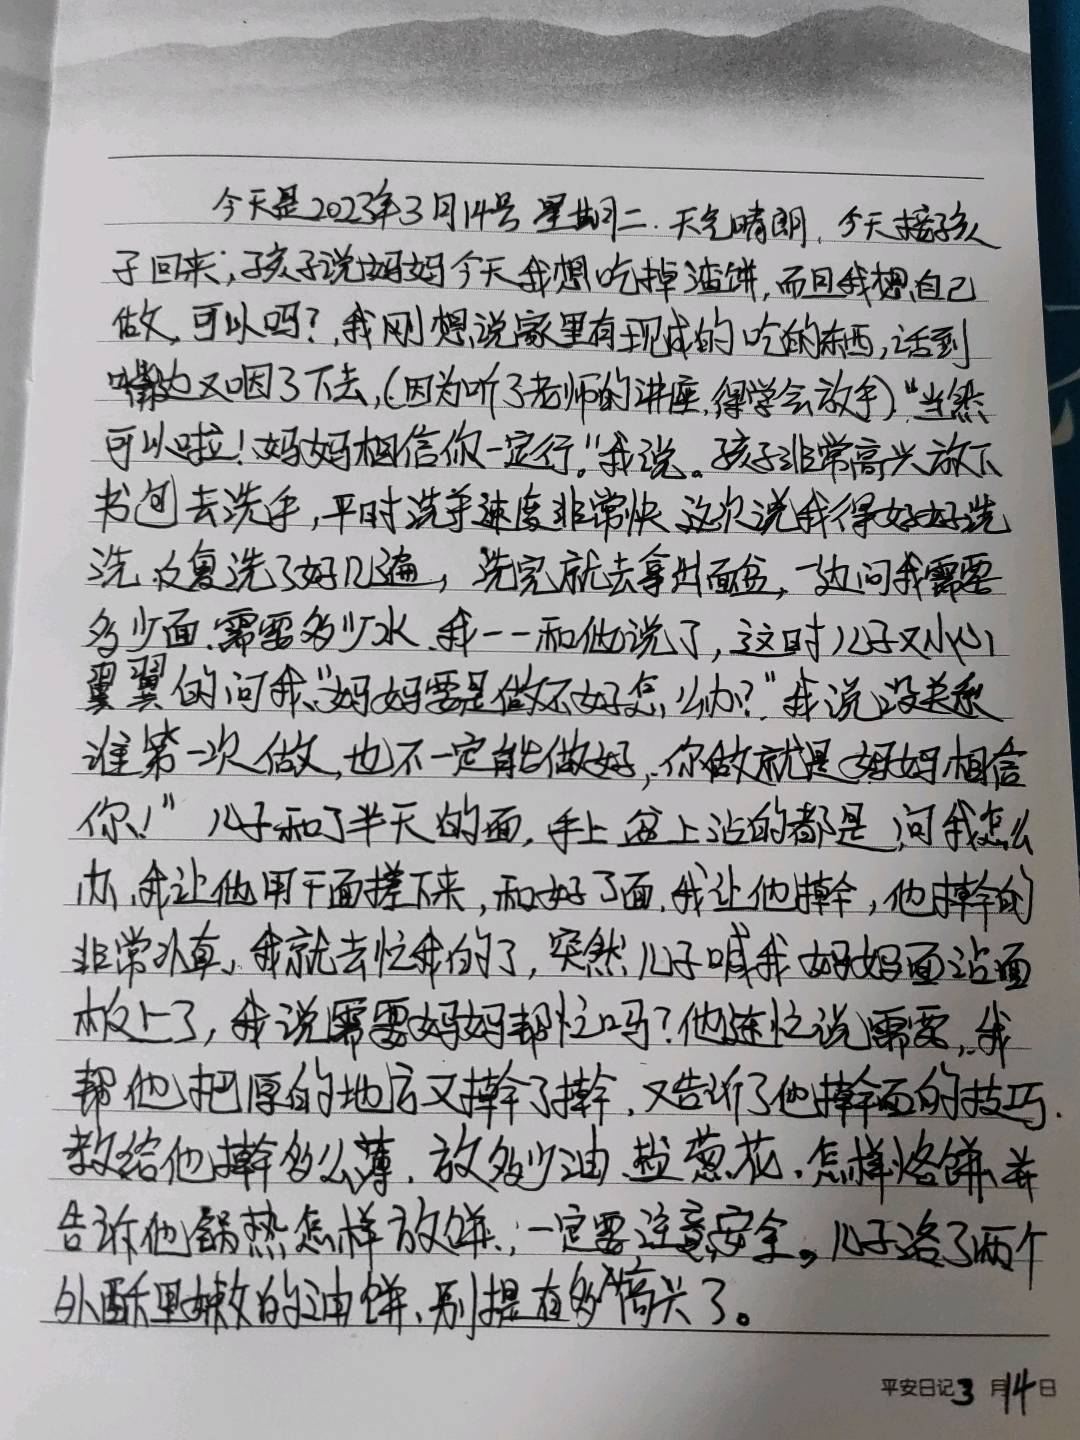 今天是2023年3月14号 星期二.天气晴朗,今天接孩
子回来,孩子说妈妈今天我想吃掉渣饼,而且我想自己
做,可以吗?,我刚想说家里有现成的吃的东西,话到
嘴边又咽了下去,(因为听了老师的讲座,得学会放手)"当然
可以啦!妈妈相信你一定行。"我说。孩子非常高兴放下
书包去洗手,平时洗手速度非常快 这次说我得好好洗
洗.反复洗了好几遍,洗完就去拿出面盆,一边问我需要
多少面、需要多少水、我一一和他说了,这时儿子又小心
翼翼的问我:"妈妈要是做不好怎么办?"我说没关系
谁第一次做,也不一定能做好,你做就是妈妈相信
你!"儿子和了半天的面,手上盆上沾的都是,问我怎么
办,我让他用干面搓下来,和好了面,我让他擀,他擀的
非常认真,我就去忙我的了,突然儿子喊我妈妈面沾面
板上了,我说需要妈妈帮忙吗?他连忙说需要,我
帮他把厚的地方又擀了擀,又告诉了他擀面的技巧.
教给他擀多么薄,放多少油、盐葱花,怎样烙饼,并
告诉他锅热怎样放饼,一定要注意安全。儿子洛了两个
外酥里嫩的油饼、别提有多高兴了。
平安日记 3 月 14 日